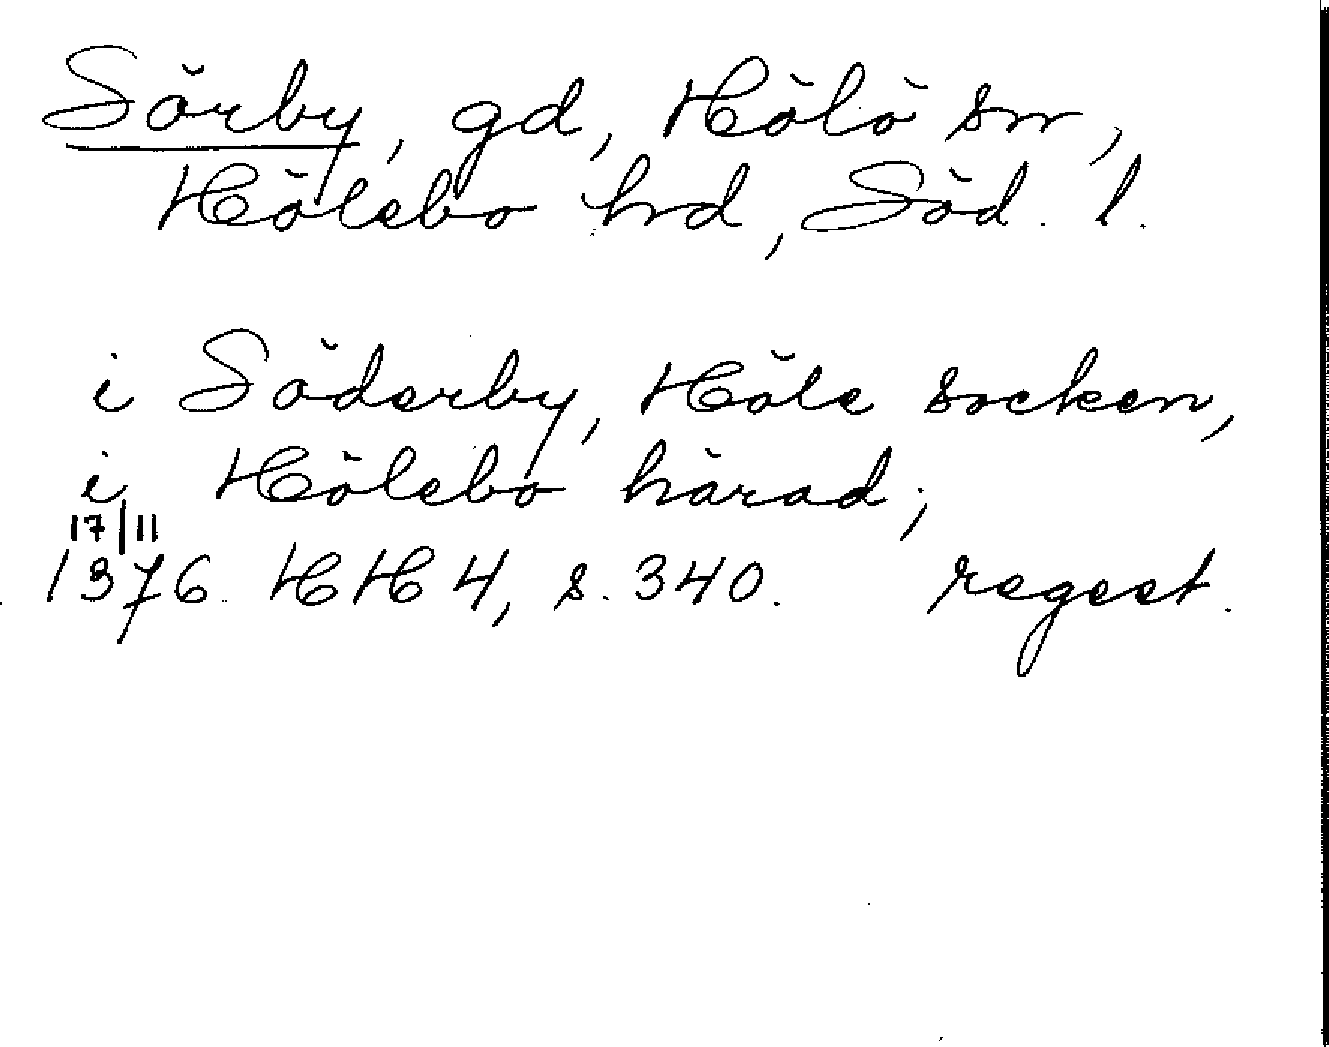 Sörby, gd, Hölö sn,
Hölebo hrd, Söd. l.
i Söderby, Höle socken,
i Hölebo härad;
17/11
1376. HH 4, s. 340. regest.